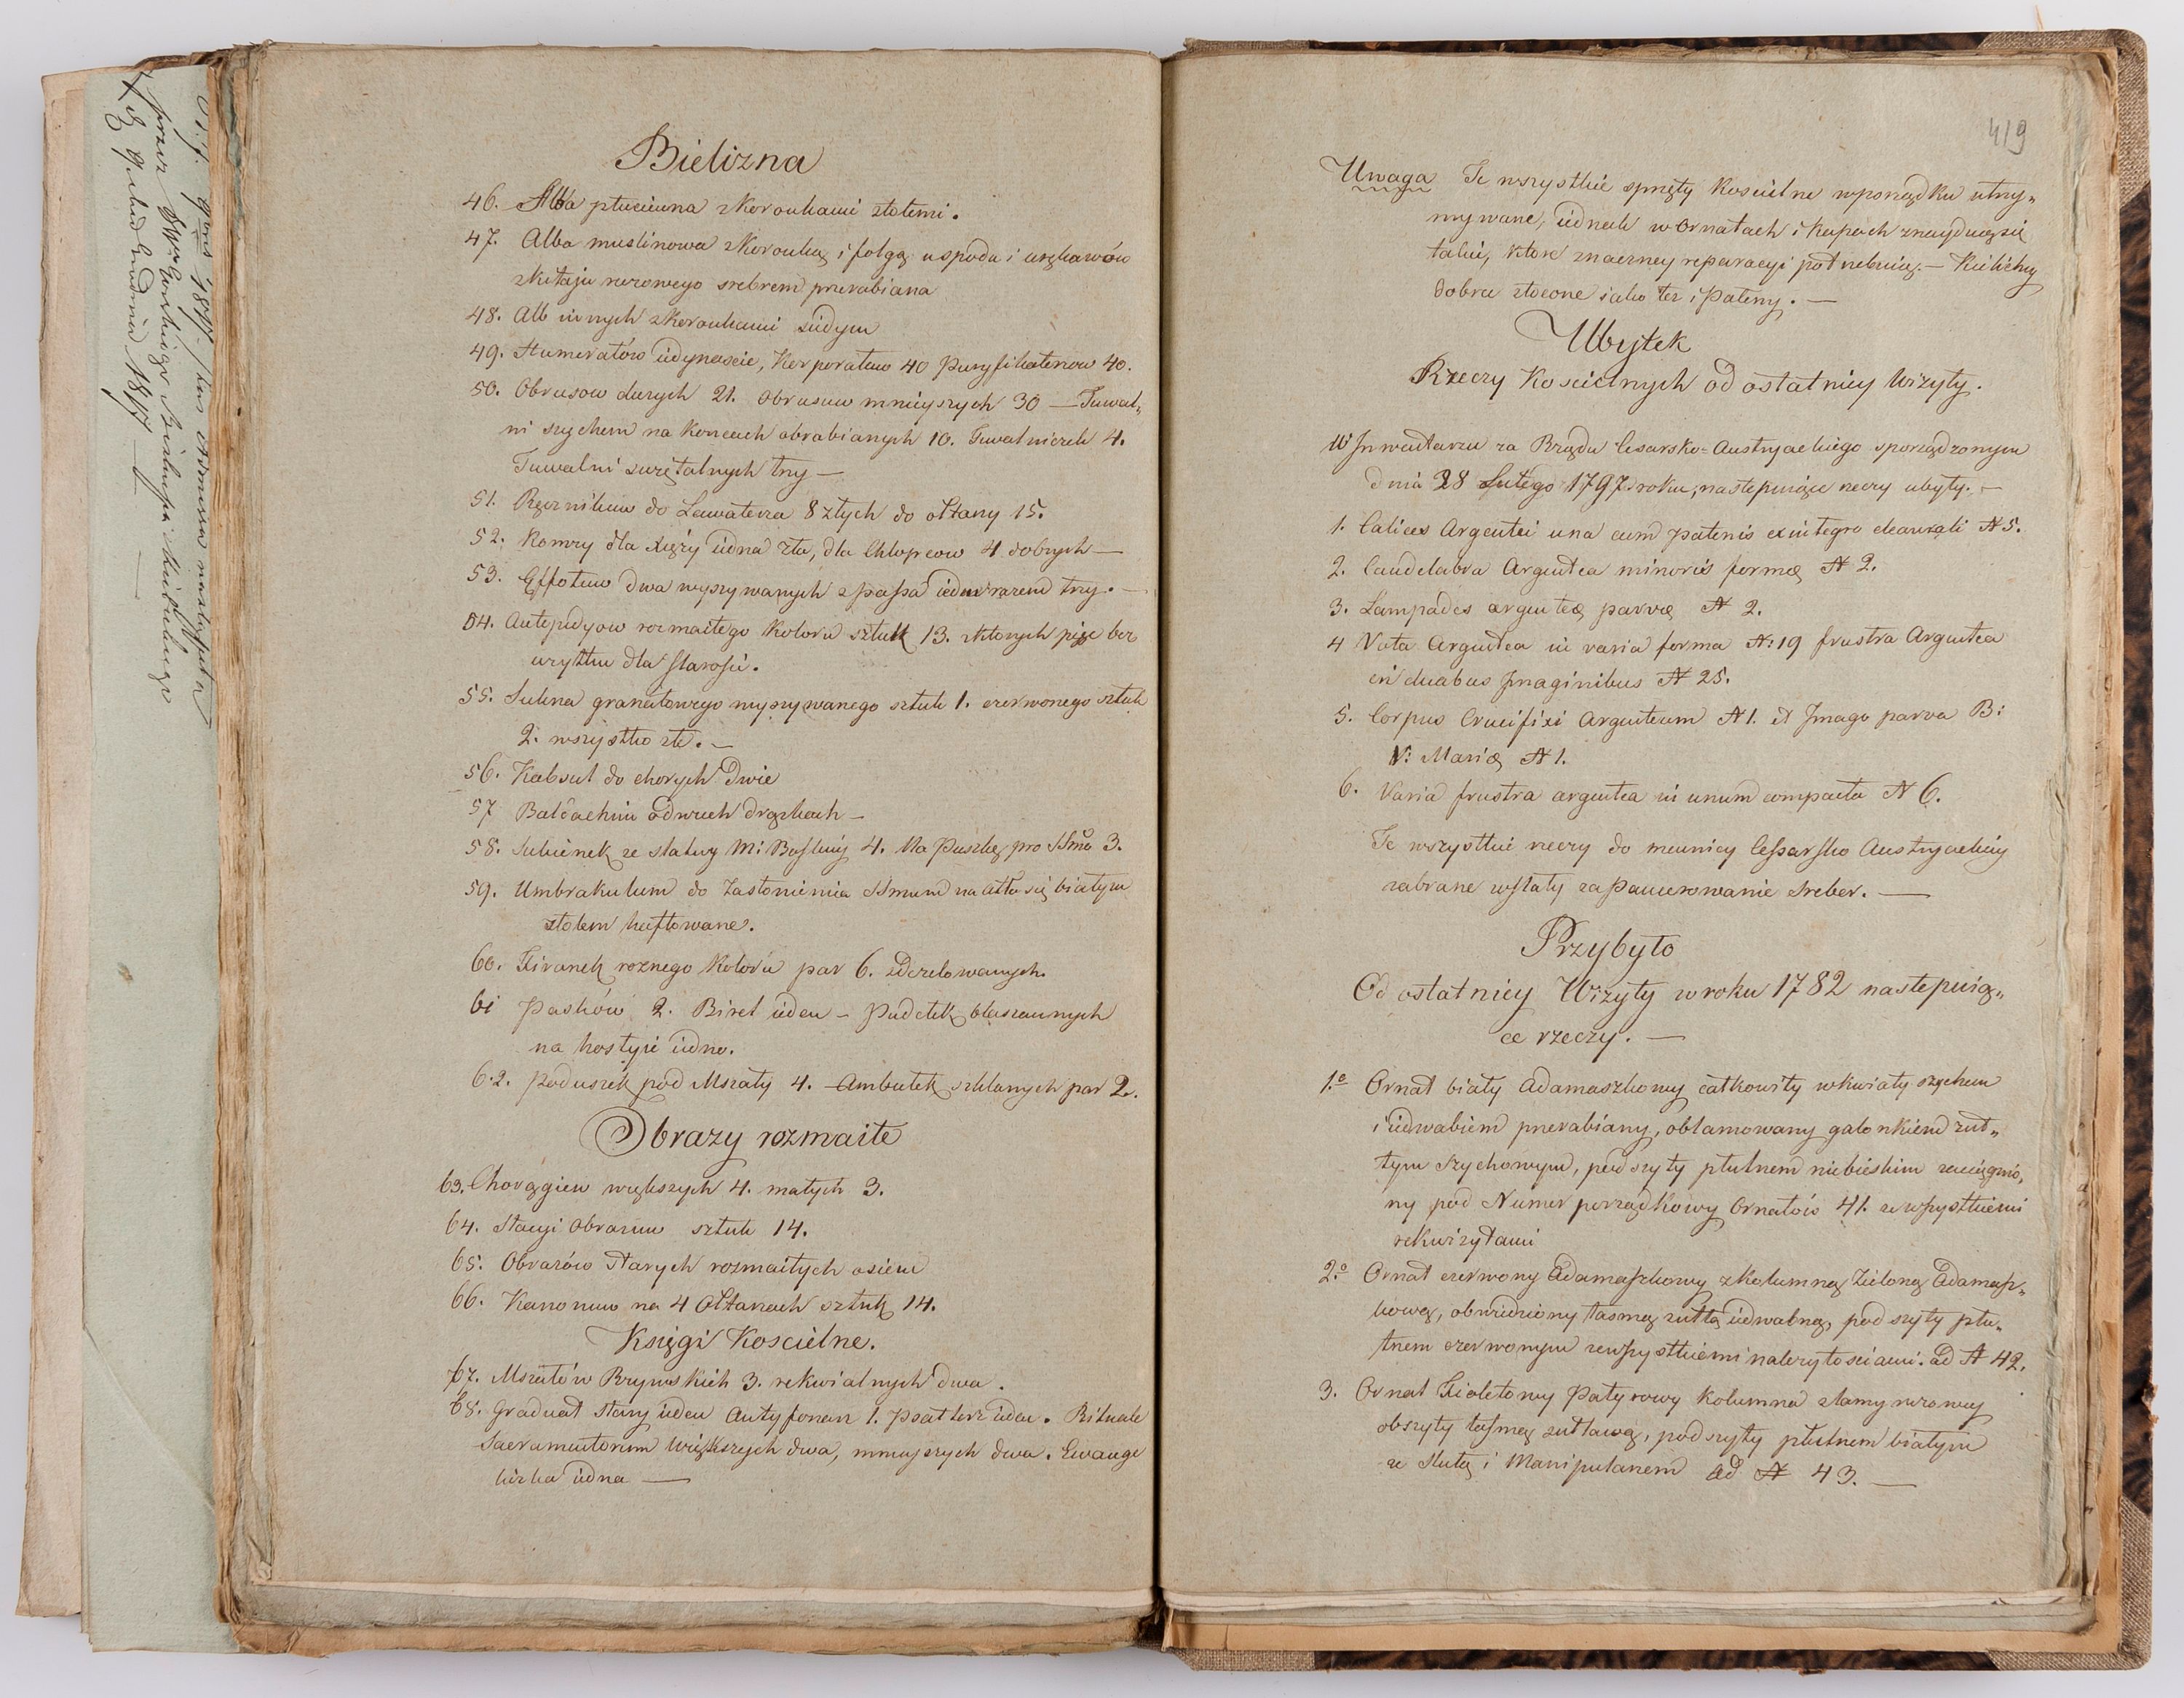 Bielizna
46. Alba płucienna z Koronkami złotemi.
47. Alba muslinowa z Koronką i folgą uspodu i urękawów
z kitaju rozowego srebrem przerabiana
48. Alb innych z Koronkami siedym
49. Humerałów iedynascie, Korporałow 40 Puryfikaterzow 40.
50. Obrusow durzych 21. Obrusow mnieyszych 30 — Tuwal„
ni szychem na Koncach obrabianych 10. Tuwalniczek 4.
Tuwalni trzy —
51. Ręcznikow do Lawaterza 8 złych do ołtarzy 15.
52. Komzy dla Xięzy iedna zła, dla Chłopcow 4 dobrych —
53. dwa wyszywanych z ieden razem trzy. —
54. Antepedyow rozmaitego Koloru sztuk 13. z ktorych pięc bez
uzytku dla starosci.
55. Sukna granatowego wyszywanego sztuk 1. czerwonego sztuk
2. wszystko złe. —
56. Kabsuł do chorych Dwie
57 Baldachim o dwuch drązkach —
58. Sukienek ze statuy M: Boskiey 4. Na Puszkę pro SSmo 3.
59. Umbrakulum do zasłonienia SSmum na atłasię białym
złotem haftowane.
60. Firanek roznego Koloru par 6.
61 Pasków 2. Biret ieden — Pudełek blaszannych
na hostyie iedno.
62. Poduszek pod Mszały 4. Ambułek szklanych par 2.
Obrazy rozmaite
63. Chorągiew większych 4. małych 3.
64. Stacyi Obrazow sztuk 14.
65. Obrazów starych rozmaitych osiem
66. Kanonow na 4 Ołtarzach sztuk 14.
Księgi Koscielne.
67. Mszałów Rzymskich 3. rekwialnych dwa.
68. Graduał stary ieden Antyfonarz 1. Psałterz ieden. Rituale
Sacramentorum Większych dwa, mnieyszych dwa. Ewange
liczka iedna —
419
Uwaga Te wszystkie sprzęty Koscielne w porządku utrzy„
mywane, iednak w Ornatach i Kapach znayduią się
takie, ktore znaczney reparacyi potrzebuią. — Kielichy
dobrze złocone iako tez i Pateny. —
Ubytek
Rzeczy Koscielnych od ostatniey Wizyty.
W Inwentarzu za Rządu Cesarsko-Austryackiego sporządzonym
dnia 28 Lutego 1797 roku, następuiące rzeczy ubyły. —
1. Calices Argentei una cum patenis ex integro deaurati N 5.
2. Candelabra Argentea minoris formæ N 2.
3. Lampades argenteæ parvæ N 2.
4 Vota Argentea in varia forma N: 19 frustra Argentea
in duabus Imaginibus N 25.
5. Corpus Crucifixi Argenteum N 1. et Imago parva B:
V: Mariæ N 1.
6. Varia frustra argentea in unum compacta N 6.
Te wszystkie rzeczy do mennicy Cessarsko Austryackiey
zabrane zostały za Puncrowanie Sreber. —
Przybyło
Od ostatniey Wizyty w roku 1782 nastepuią„
ce rzeczy. —
1.o Ornat biały Adamaszkowy całkowity w kwiaty szychem
i iedwabiem przerabiany, oblamowany galonkiem zuł„
tym szychowym, podszyty płutnem niebieskim zaciągnio„
ny pod Numer porządkowy Ornatów 41. ze wszystkiemi
rekwizytami
2.o Ornat czerwony Adamaszkowy z kolumną zieloną Adamasz„
kową, obwiedziony tasmą zułtą iedwabną, podszyty płu„
tnem czerwonym ze wszystkiemi nalezytosciami. ad N 42.
3. Ornat Fioletowy Patyrowy Kolumna z lamy rozowey
obszyty tasmą zułtawą, podszyty płutnem białym
ze stułą i Manipularzem Ad N 43. —